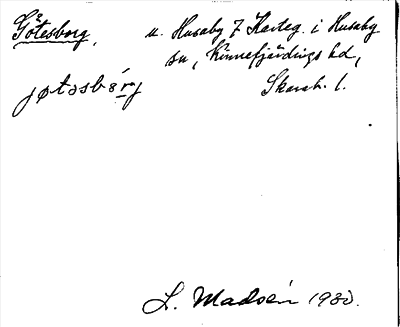 Götesborg, u. Husaby 7 Karteg. i Husaby
sn, Kinnefjärdings hd,
Skarab. l.
jøtasbórj
L. Madsén 1930.